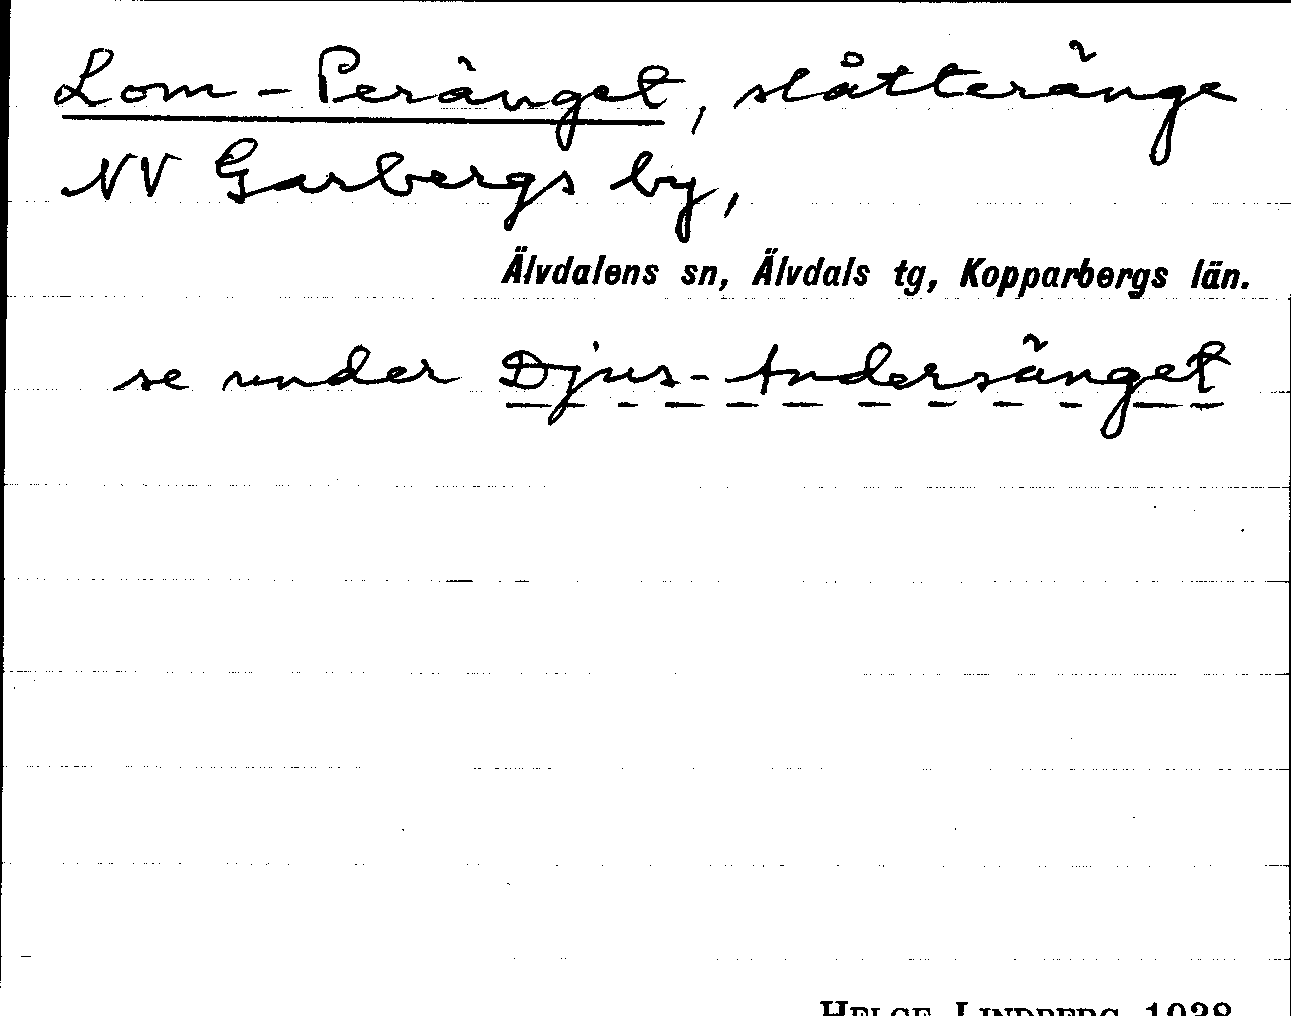 Lom-Peränget, slåtteränge
NV Garbergs by,
Älvdalens sn, Älvdals tg, Kopparbergs län.
se under Djus-Andersänget
HELGE LINDBERG 1938